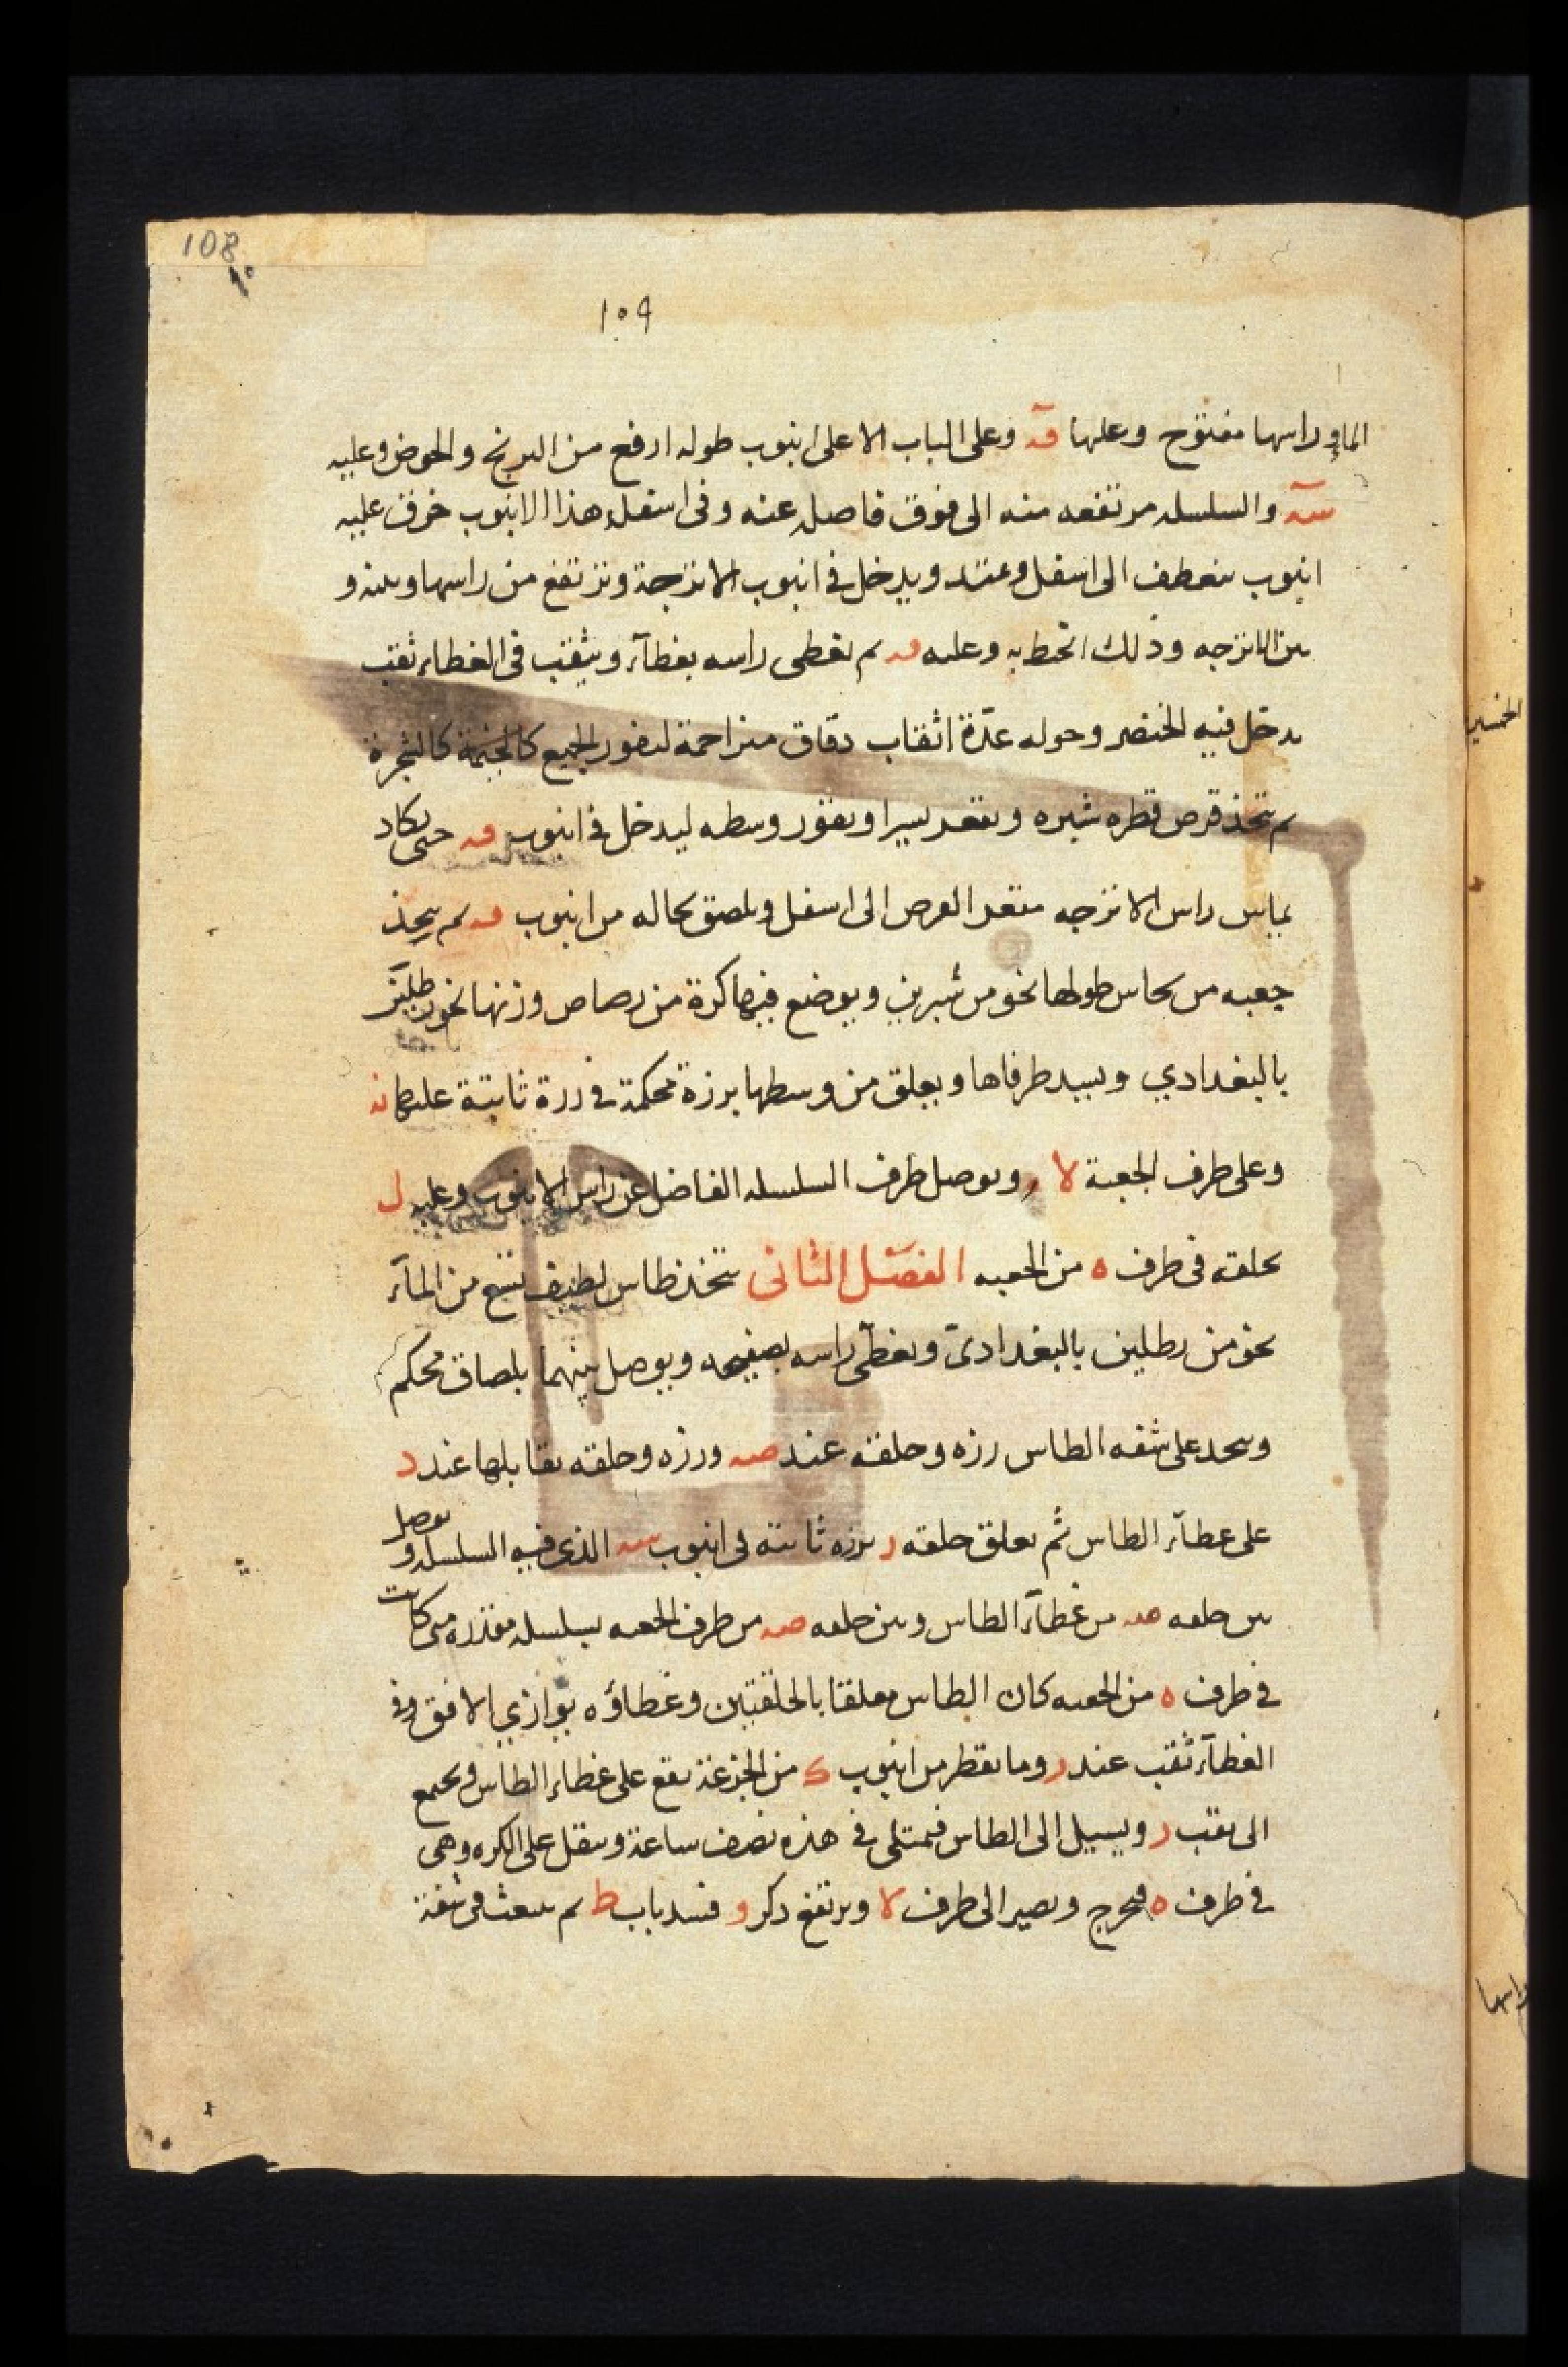 108
١٠
١٠٩
الماء وراسها مفتوح وعليها قه وعلى الباب الاعلى انبوب طوله ارفع من البربخ والحوض وعليه
سه والسلسله مرتفعه منه الى فوق فاصله عنه وفى اسفل هذا الانبوب خرق عليه
انبوب ينعطف الى اسفل وعتد ويدخل فى انبوب الاترجة وترتفع من راسها وبينه و
بين الاترجه وذلك انحط به وعليه فه ثم يغطى راسه بغطآء ويثقب فى الغطاء ثقب
يدخل فيه الخنصر وحوله عدّة اثقاب دقاق متزاحمة ليفور الجميع كالخيمة كالشجرة
ثم يتخذ قرص قطره شبره ويقعر يسيرا ويقور وسطه ليدخل فى انبوب فه حتى يكاد
يماس راس الاترجه مقعر القرص الى اسفل ويلصق بحاله من انبوب فه ثم يتخذ
جعبه من نحاس طولها نحو من شبرين ويوضع فيها كرة من رصاص وزنها نحو رطلين
بالبغدادي ويسد طرفاها ويعلق من وسطها برزة محكمة فى رزة ثابتة عليها نه
وعلى طرف الجعبة لا ه ويوصل طرف السلسله الفاضل عن راس الانبوب وعليه ل
بحلقه فى طرف ه من الجعبه الفصل الثانى يتخذ طاس لطيف يتسع من المآء
نحو من رطلين بالبغدادى ويغطى راسه بصفيحه ويوصل بينهما بلصاق محكم
ويتخذ على شفه الطاس رزه وحلقه عند صه ورزه وحلقه تقابلها عند د
على غطآء الطاس ثم يعلق حلقه د برزه ثابته فى انبوب سه الذى فيه السلسله ويوصل
بين حلقه صه من غطآء الطاس وبين حلقه صه من طرف الجعبه بسلسله مقدره متى كانت
فى طرف ه من الجعبه كان الطاس معلقا بالحلقتين وغطاؤه يوازي الافق وفى
الغطآء ثقب عند ر وما يقطر من انبوب ك من الجزعة يقع على غطاء الطاس ويجتمع
الى ثقب ر ويسيل الى الطاس فيمتلى فى هذه نصف ساعة ويثقل على الكره وهى
فى طرف ه فيخرج ويصير الى طرف لا ويرتفع ذكر و فيسد باب ط ثم ينبعث فى شفة